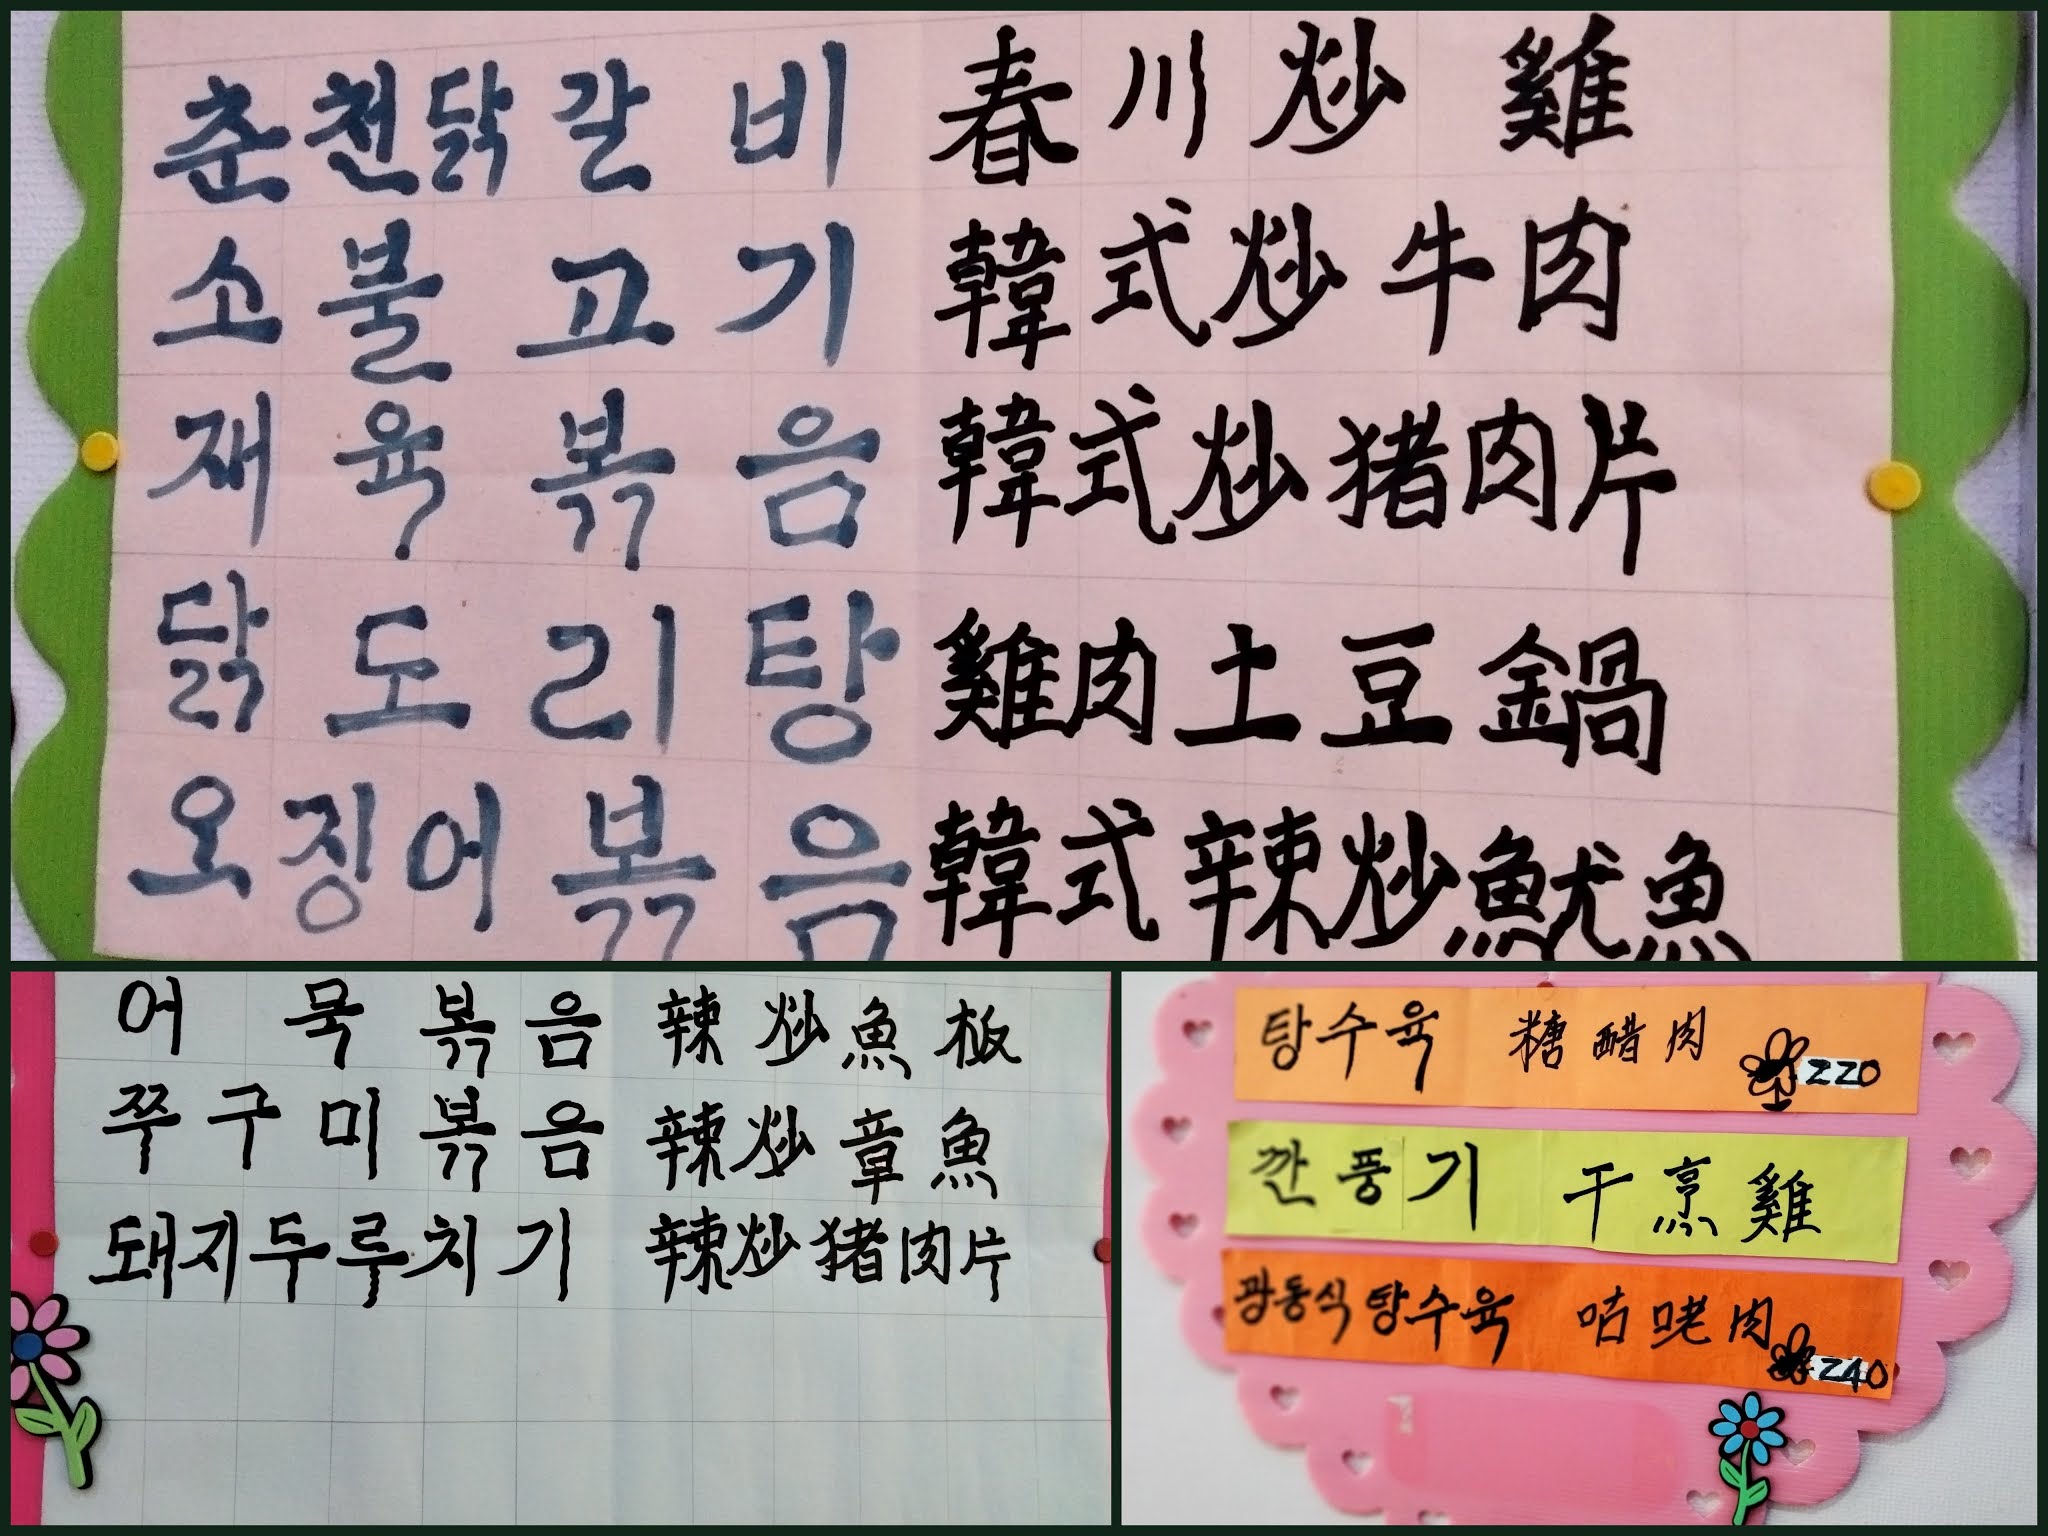 춘천닭갈비 春川炒雞
소불고기 韓式炒牛肉
재육볶음 韓式炒猪肉片
닭도리탕 雞肉土豆鍋
오징어볶음 韓式辣炒魷魚
어묵볶음 辣炒魚板
쭈구미볶음 辣炒章魚
돼지두루치기 辣炒猪肉片
탕수육 糖醋肉 220
깐풍기 干烹雞
광동식탕수육 咕咾肉 240